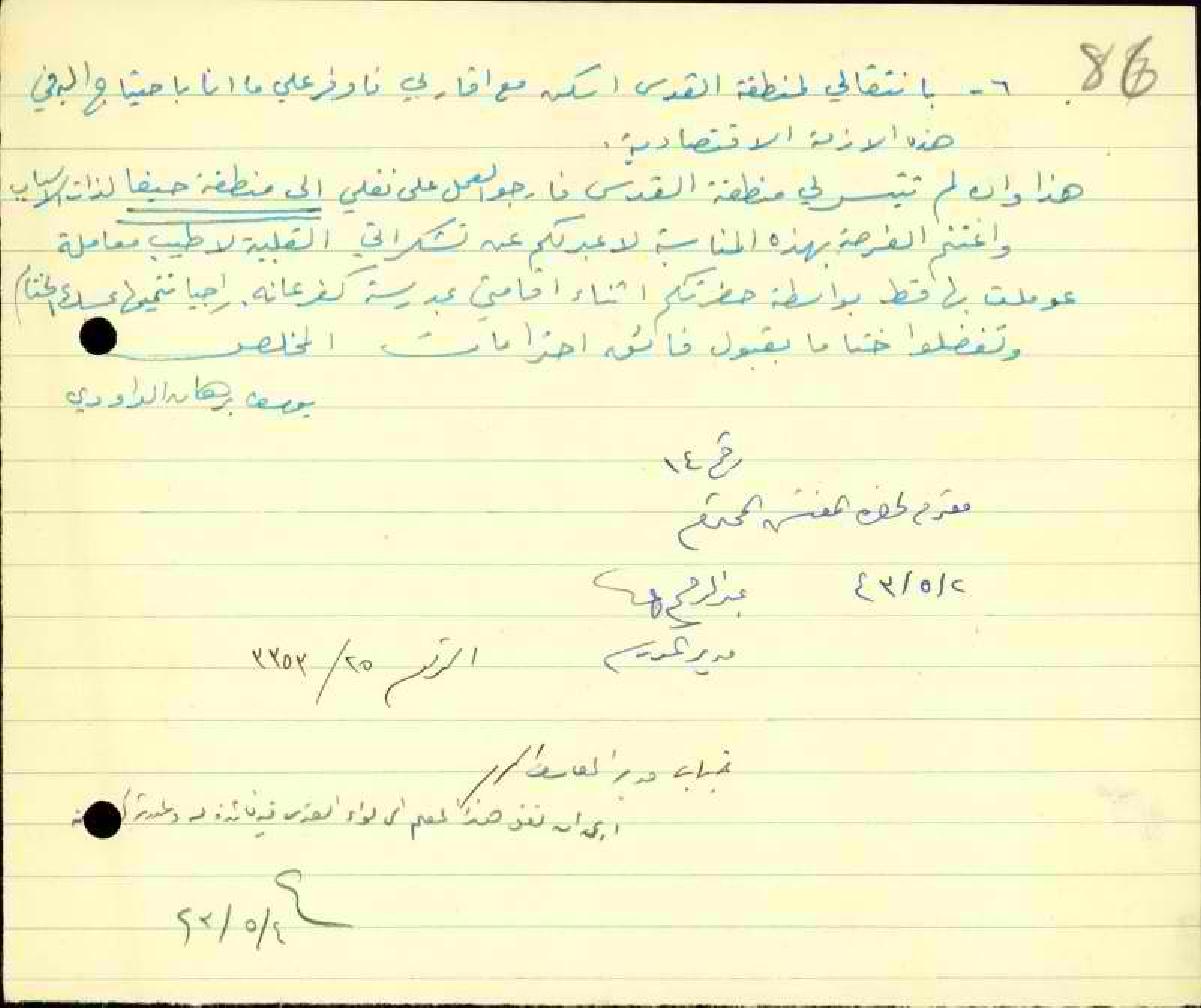 86
٦- بانتقالي لمنطقة القدس اسكن مع اقاربي فاوفر علي ما انا باحتياج اليه في
هذه الازمة الاقتصادية.
هذا وان لم تتيسر لي منطقة القدس فارجو العمل على نقلي الى منطقة حيفا لذات الاسباب
واغتنم الفرصة بهذه المناسبة لاعبر لكم عن تشكراتي القلبية لاطيب معاملة
عوملت بها قط بواسطة حضرتكم اثناء اقامتي بمدرسة كفرعانه. راجيا
وتفضلوا ختاما بقبول فائق احترامات المخلص
يوسف برهان الداودي
رقم ١٤
مقدم لحضرة المفتش المحترم
٤٣/٥/٢ عبدالرحيم
مدير المدرسة
الرقم ٢٥/ ٣٢٥٣
جناب مدير المعارف
ارى ان نقل هذا المعلم الى لواء القدس فيه فائدة له
٤٣/٥/٤